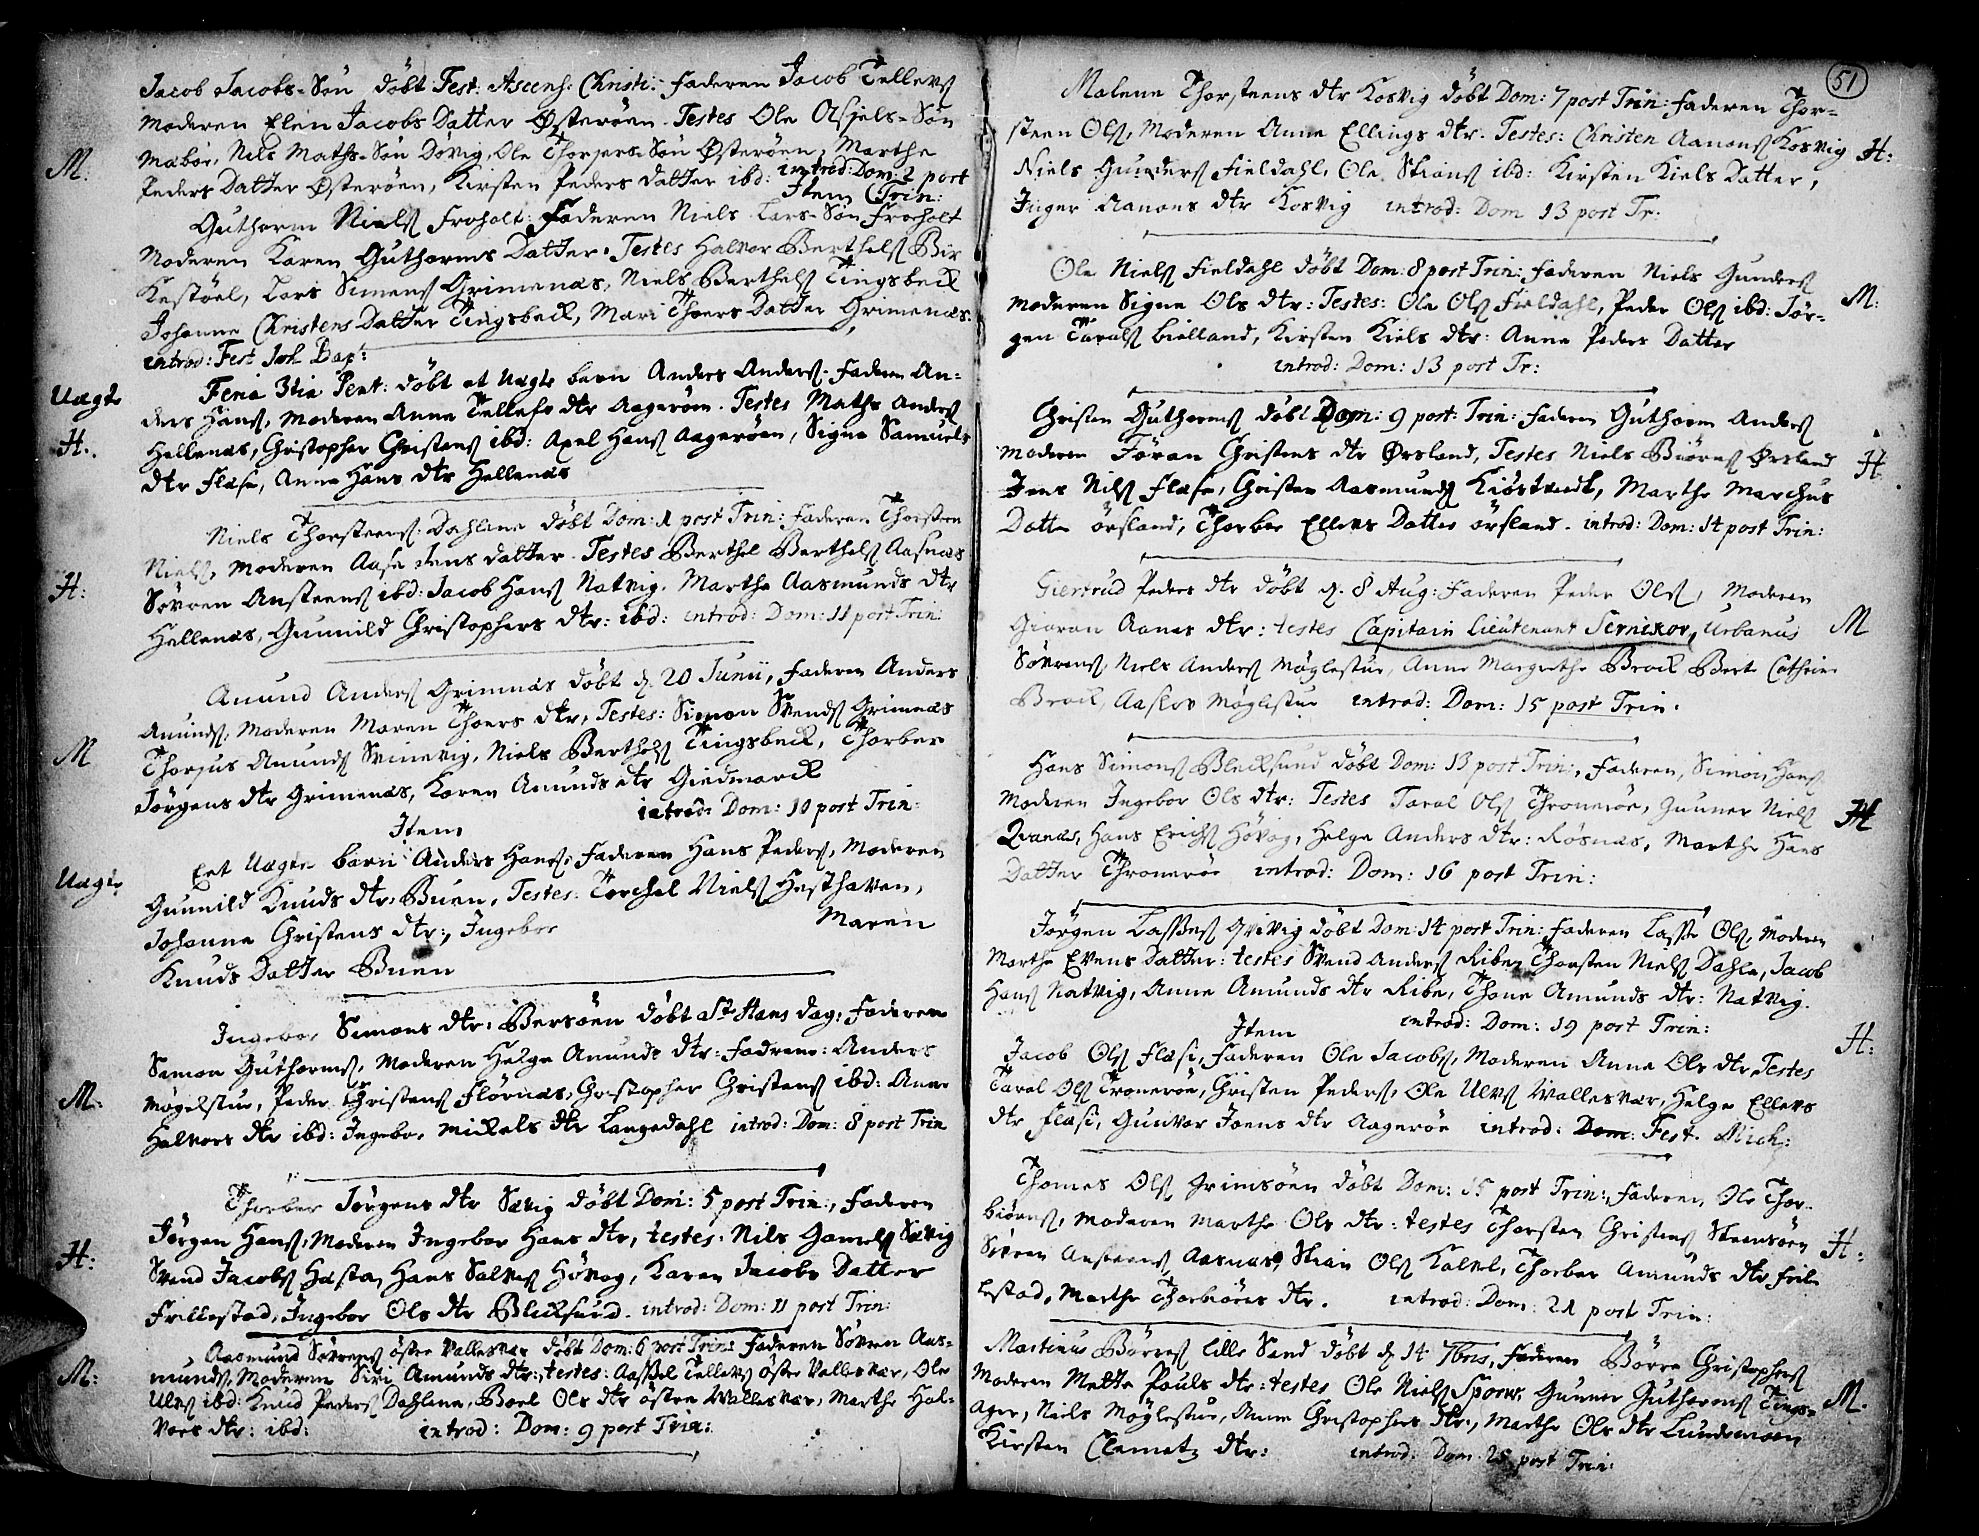 Jacob Jacobs-Søn döbt Fest: Ascens: Christi: Faderen Jacob Tellevs
Moderen Elen Jacobs Datter Østeröen. Testes Ole Olsjels-Søn
M: Mæbör, Nils Maths-Søn Dovig, Ole Thorjers-Søn Østeröen, Marthe
Peders Datter Østeröen, Kirsten Peders datter ibd: introd: Dom: 2 post
Item Trin:
Guthorm Niels Froholt: Faderen Niels Lars-Søn Froholt
Moderen Karen Guthorms Datter. Testes Halvor Berthels Bir
Kestöel, Lars Simens Grimenæs, Niels Berthels Tingsbeck
Johanne Christens Datter Tingsbeck, Mari Thoers Datter Grimenæs.
introd: Fest Joh Bap:
Uægte Feria 3tia Pent: döbt et Uægte barn Anders Anders. Faderen An-
ders Hans, Moderen Anne Tellefs dtr Aageröen. Testes Maths Anders
H. Hellenæs, Christopher Christens ibd: Axel Hans Aageröen, Signe Samuels
dtr Flæse, Anne Hans dtr Hellenæs
Niels Thorsteens Dahlene döbt Dom: 1 post Trin: Faderen Thorsteen
Niels, Moderen Aase Jens datter. Testes Berthel Berthels Aasnæs
H: Sövren Ansteens ibd: Jacob Hans Natvig. Marthe Aasmunds dtr
Hellenæs, Gunnild Christophers dtr: ibd: introd: Dom: 11 post Trin:
Amund Anders Grimnæs döbt d. 20 Junii, Faderen Anders
Amunds, Moderen Maren Thoers dtr, Testes: Simon Svends Grimenæs
M Thorjus Amunds Svinevig, Niels Berthels Tingsbeck, Thorber
Jörgens dtr Grimenæs, Karen Amunds dtr Giedmarck
introd: Dom: 10 post Trin:
Item
Uægte Eet Uægte barn Anders Hans, Faderen Hans Peders, Moderen
Gunnild Knuds dtr: Buen, Testes: Torchel Niels Hesthaven,
Johanne Christens dtr:, Ingebor Maren
Knuds Datter Buen
Ingebor Simons dtr: Bersöen döbt a St Hans dag, Faderen
Simon Guthorms, Moderen Helge Amunds dtr: Fadrene: Anders
M: Mögelstue, Peder Christens Flörnæs, Christopher Christens ibd: Anne
Halvors dtr ibd: Ingebor Mickels dtr Langedahl introd: Dom: 8 post Trin
Thorber Jörgens dtr Sævig döbt Dom: 5 post Trin:, Faderen
Jörgen Hans, Moderen Ingebor Hans dtr, testes. Nils Gamels Sævig
H: Svend Jacobs Hæsta, Hans Salves Hövog, Karen Jacobs Datter
Frillestad, Ingebor Ols dtr Blecksund. introd: Dom: 11 post Trin:
Aasmund Sövrens östre Vallesvær döbt Dom: 6 post Trin: Faderen Sövren Aas-
M: munds, Moderen Siri Amunds dtr: testes: Aassel Tellevs östre Vallesvær, Ole
Ulvs ibd: Knud Peders Dahlene, Boel Ols dtr östre Vallesvær, Marthe Hal-
vors dtr: ibd: introd: Dom: 9 post Trin:
51
Malene Thorsteens dtr Kosvig döbt Dom: 7 post Trin: Faderen Thor-
steen Ols, Moderen Anne Ellings dtr. Testes: Christen Aanons Kosvig H:
Niels Gunders Fieldahl, Ole Stians ibd: Kirsten Kiels Datter,
Inger Aanons dtr Kosvig introd: Dom 13 post Tr:
Ole Niels Fieldahl döbt Dom: 8 post Trin:, Faderen Niels Gunders
Moderen Signe Ols dtr: Testes: Ole Ols Fieldahl, Peder Ols ibd: Jör- M:
gen Taralds Bielland, Kirsten Kiels dtr: Anne Peders Datter
introd: Dom: 13 post Tr:
Christen Guthorms döbt Dom: 9 post: Trin: Faderen Guthorm Anders
Moderen Jöran Christens dtr Ørsland, Testes Niels Biörns Ørsland H
Jens Nils Flæse, Christen Aasmunds Kiöstvedt, Marthe Marchus
Datter örsland, Thorber Ellevs Datter örsland. introd: Dom: 14 post Trin:
Giertrud Peders dtr döbt d. 8 Aug: Faderen Peder Ols, Moderen
Gioran Aanes dtr: testes Capitain Lieutenant Sernikov, Urbanus M
Sövrens, Niels Anders Möglestue, Anne Margrethe Brock Berte Cathrine
Brock, Aaslov Möglestue introd: Dom: 15 post Trin.
Hans Simons Blecksund döbt Dom: 13 post Trin:, Faderen, Simon Hans
Moderen Ingebor Ols dtr: Testes Taral Ols Troneröe, Gunner Niels M
Qvanæs, Hans Erichs Hövog, Helge Anders dtr: Rösnæs, Marthe Hans
Datter Throneröe introd: Dom: 16 post Trin:
Jörgen Lasses Qvivig döbt Dom: 14 post Trin: Faderen Lasse Ols, Moderen
Marthe Evens Datter: testes Svend Anders Ribe, Thorsten Niels Dahle, Jacob
Hans Natvig, Anne Amunds dtr Ribe, Thone Amunds dtr: Natvig.
Item introd: Dom: 19 post Trin:
Jacob Ols Flæse, Faderen Ole Jacobs, Moderen Anne Ols dtr Testes H:
Taral Ols Troneröe, Christen Peders, Ole Ulvs Vallesvær, Helge Ellevs
dtr Flæse, Gunvor Joens dtr Aageröe introd: Dom: Fest. Mich:
Thomes Ols Grimsöen döbt Dom: 15 post Trin:, Faderen Ole Thor-
biörns, Moderen Marthe Ols dtr: testes Thorsten Christens Steensöen
Sövren Ansteens Aasnæs, Stian Ols Kalvel, Thorber Amunds dtr Fril- H:
lestad, Marthe Thorbiörns dtr. introd: Dom: 21 post Trin:
Martinus Börres Lille Sand döbt d 14 7bris, Faderen Börre Christophers
Moderen Mette Pouls dtr: testes Ole Niels Spoerv. Gunner Guthorms Tings- M.
Ager, Niels Möglestue, Anne Christophers dtr:, Marthe Ols dtr Lundemoen
Kirsten Clemetz dtr: introd: Dom. 25 post Trin: